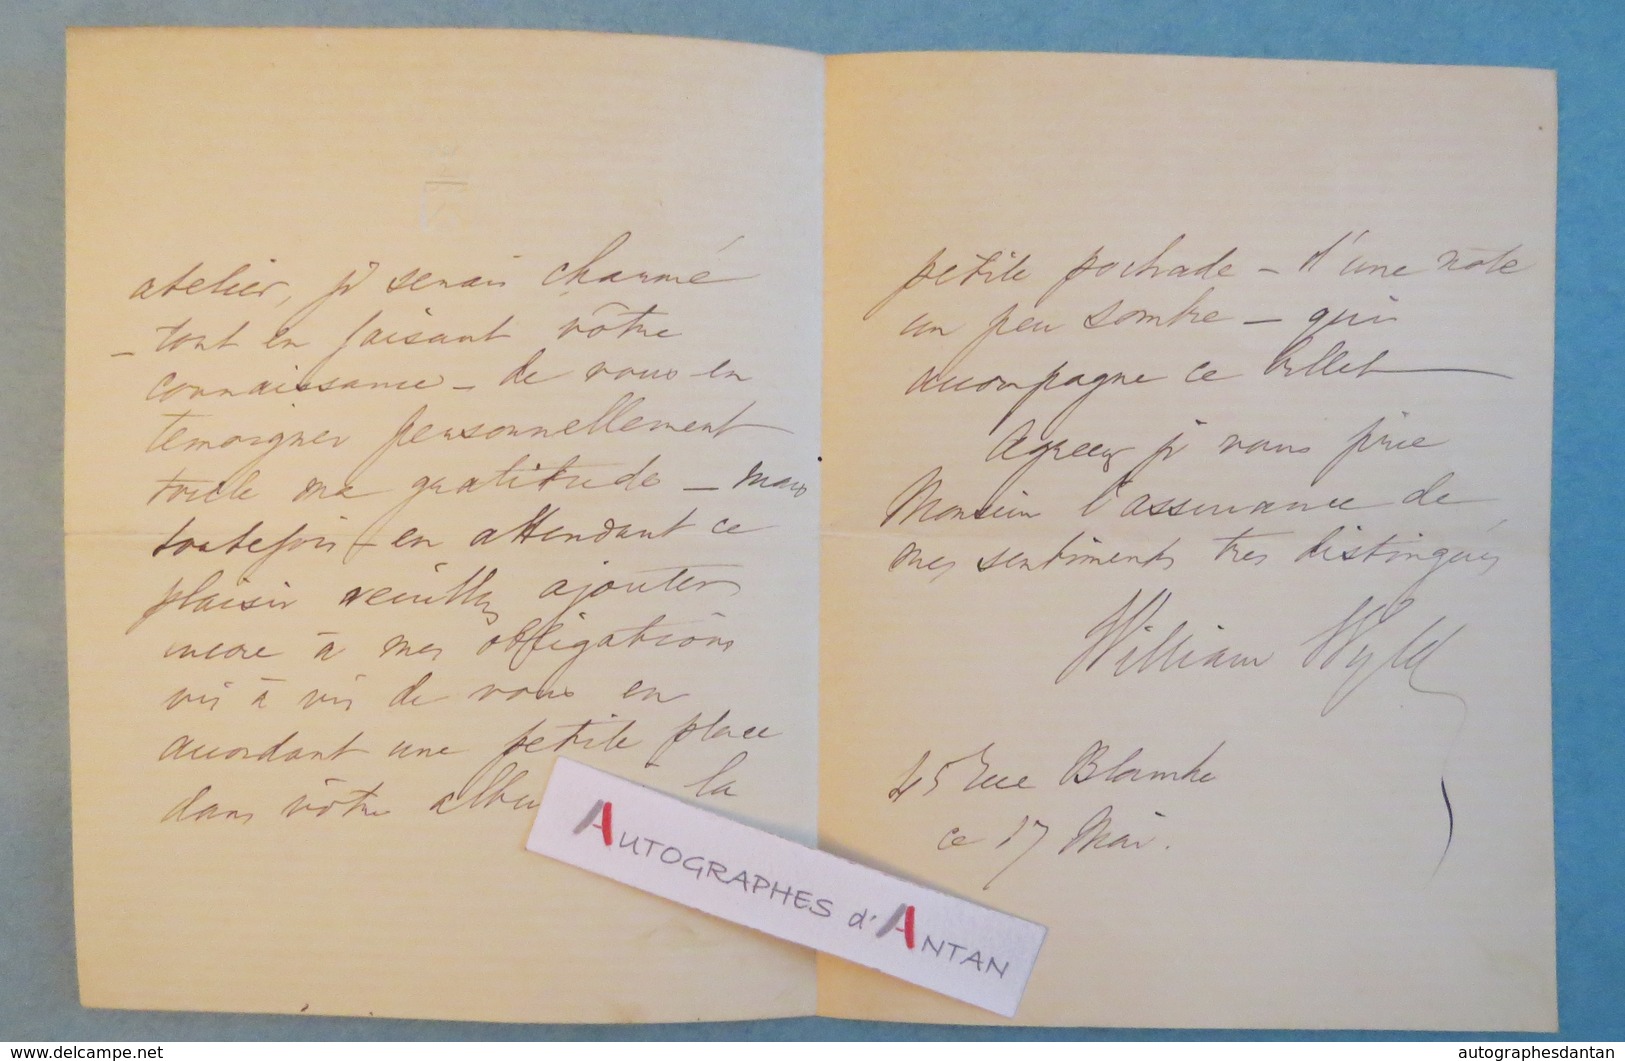 atelier, je serais charmé
– tout en faisant vôtre
connaissance – de vous en
temoigner personnellement
toute ma gratitude – mais
toutefois – en attendant ce
plaisir veuillez ajouter
encore à mes obligations
vis à vis de vous en
accordant une petite place
dans vôtre albu la
petite pochade – d'une note
un peu sombre – qui
accompagne ce billet —
Agreez je vous prie
Monsieur l'assurance de
mes sentiments tres distingués
William Wyld
45 rue Blanche
ce 17 Mai.
AUTOGRAPHES d'ANTAN
www.delcampe.net
autographesdantan